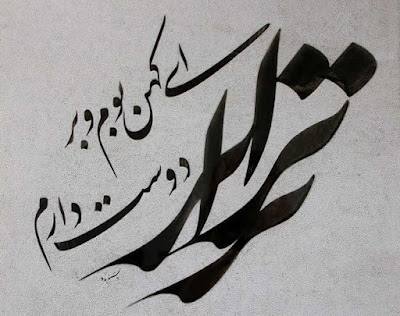 ترا
ای کهن بوم و بر
دوست دارم